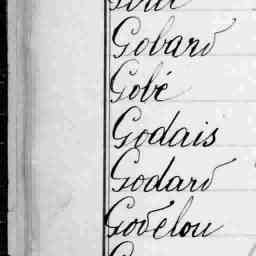 Gobard
Gobé
Godais
Godard
Godélou